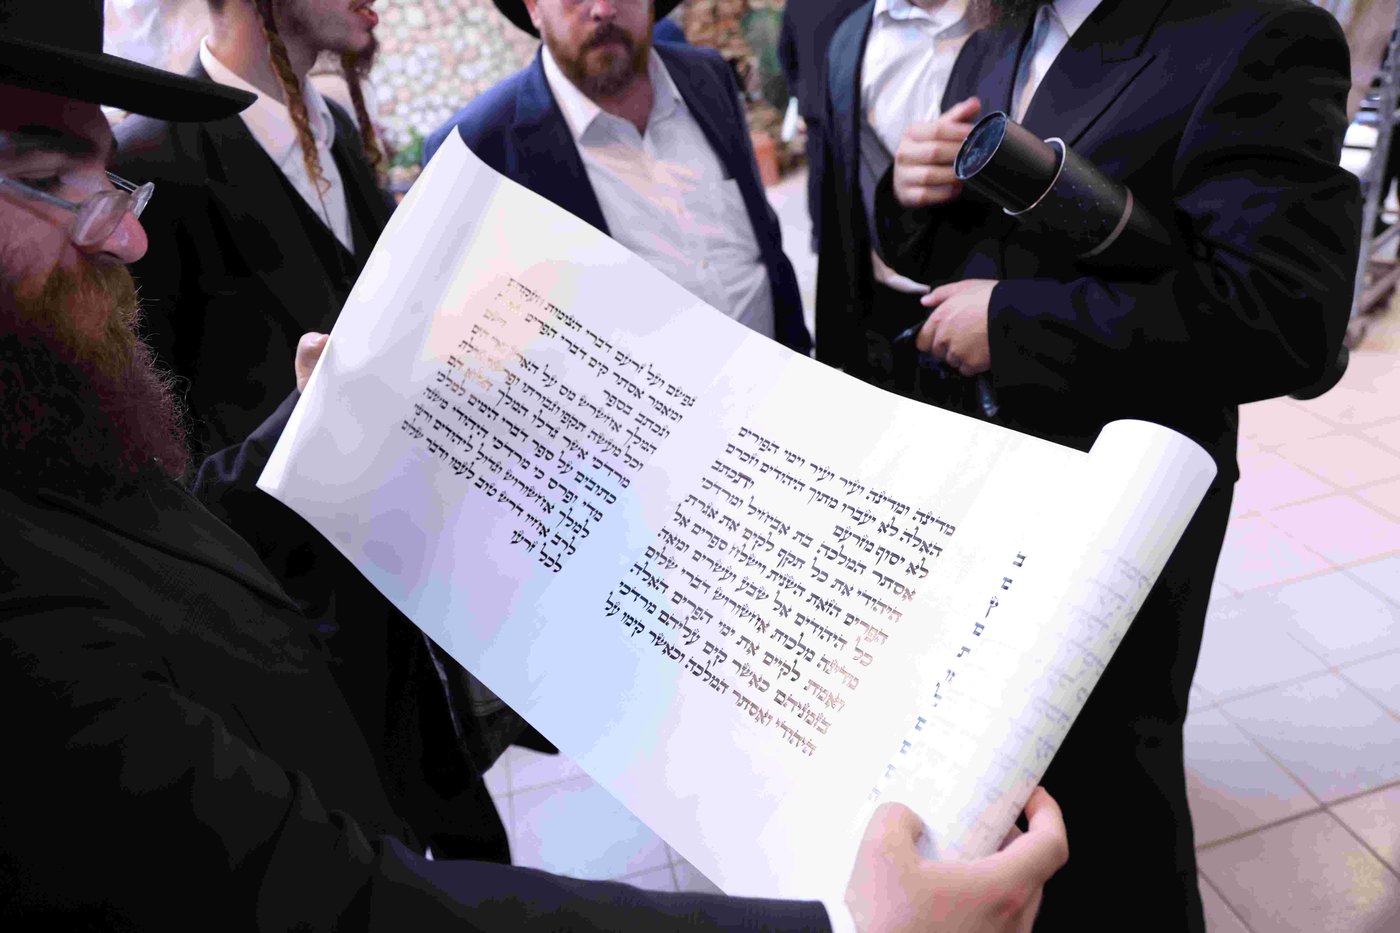 מדינה ומדינה ועיר ועיר וימי הפורים
האלה לא יעברו מתוך היהודים וזכרם
לא יסוף מזרעם ותכתב
אסתר המלכה בת אביחיל ומרדכי
היהודי את כל תקף לקים את אגרת
הפרים הזאת השנית וישלח ספרים אל
כל היהודים אל שבע ועשרים ומאה
מדינה מלכות אחשורוש דברי שלום
ואמת לקים את ימי הפרים האלה
בזמניהם כאשר קים עליהם מרדכי
היהודי ואסתר המלכה וכאשר קימו על
נפשם ועל זרעם דברי הצומות וזעקתם
ומאמר אסתר קים דברי הפרים האלה
ונכתב בספר וישם
המלך אחשרש מס על הארץ ואיי הים
וכל מעשה תקפו וגבורתו ופרשת גדלת
מרדכי אשר גדלו המלך הלוא הם
כתובים על ספר דברי הימים למלכי
מדי ופרס כי מרדכי היהודי משנה
למלך אחשורוש וגדול ליהודים ורצוי
לרב אחיו דרש טוב לעמו ודבר שלום
לכל זרעו